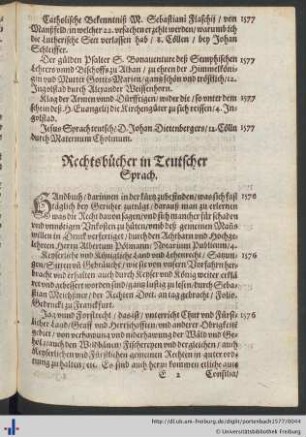 Catholische Bekenntniß M. Sebastiani Flaschij / von 1577
Manßfeld / in welcher 22. vrsachen erzehlt werden / warumb ich
die Lutherische Sect verlassen hab / 8. Cöllen / bey Johan
Schleisser.
Der gülden Psalter S. Bonauenture deß Seraphischen 1577
Lehrers vnnd Bischoffs zu Alban / zu ehren der Himmelköni-
gin vnd Mutter Gottes Marien / gantz schön vnd tröstlich / 12.
Ingolstad durch Alexander Weissenhorn.
Klag der Armen vnnd Dürfftigen / wider die / so vnter dem 1577
schein deß H. Euangelij die Kirchengüter zu sich reissen / 4. In-
golstad.
Jesus Syrach teutsch / D. Johan Dietenbergers / 12. Cölln 1577
durch Maternum Cholinum.
Rechtsbücher in Teutscher
Sprach.
HAndbuch / darinnen in der kürtz zubefinden / was sich fast 1576
täglich bey Gerichte zuträgt / darauß man zu erlernen
was die Recht dauon sagen / vnd sich mancher für schaden
vnd vnnötigen Vnkosten zu hüten / vnd deß gemeinen Manns
willen in Druck verfertiget / durch den Achtbarn vnd Hochge-
lehrten Herrn Albertum Pölmann / Notarium Publicum / 4.
Keyserliche vnd Königliche Land vnd Lehenrecht / Satzun-
gen / Sitten vnd Gebräuche / wie sie von vnsern Vorfahren her-
bracht vnd erhalten auch durch Keyser vnd König weiter erklä-
ret vnd gebessert worden sind / gantz lustig zu lesen / durch Sebas-
tian Meichßner / der Rechten Doct. an tag gebracht / Folio.
Gedruckt zu Franckfurt.
Jag vnnd Forstrecht / das ist / vnterricht Chur vnd Fürst- 1576
licher Land / auch Graff vnd Herrschafften / vnd anderer Obrigkeit
Gebiet / von verhawung vnd widerhawung der Wäld vnd Ge-
hölz / auch den Wildbänen / Fischereyen vnd dergleichen / auch
Keyserlichen vnd Fürstlichen gemeinen Rechten in guter ord-
nung zu halten / etc. Es sind auch herzu kommen etliche auch
E 2 Consilia /
http://dl.ub.uni-freiburg.de/diglit/portenbach1577/0049
© Universitätsbibliothek Freiburg